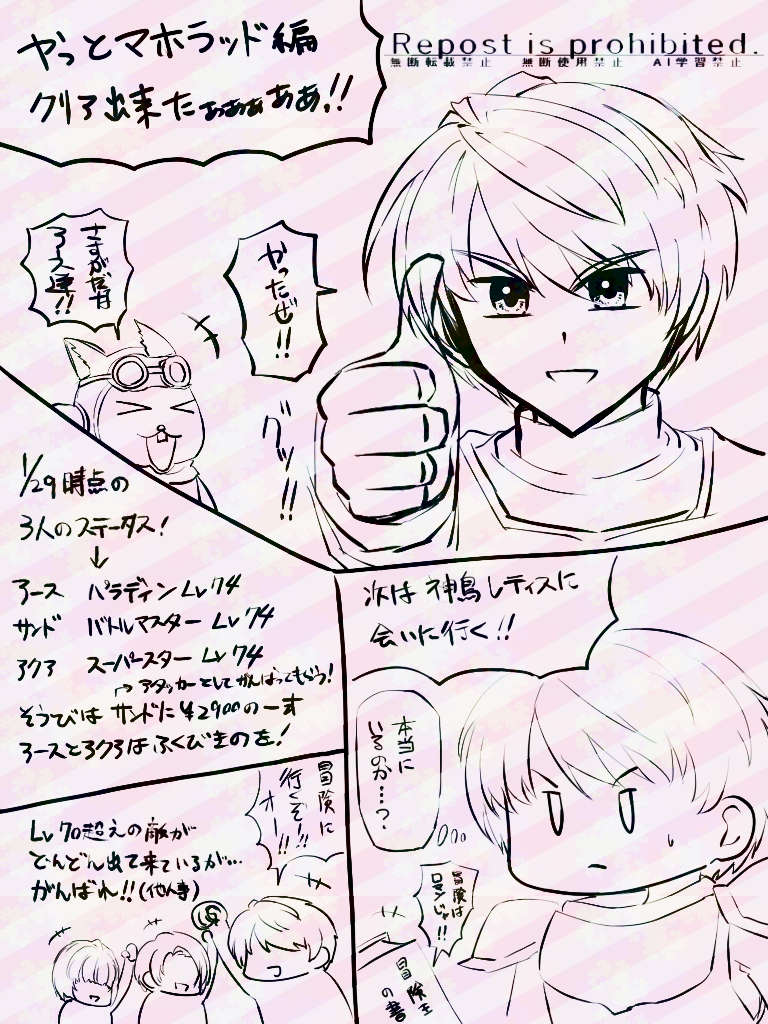 やっとマホラッド編
クリア出来たぁぁぁああ!!
Repost is prohibited.
無断転載禁止 無断使用禁止 AI学習禁止
やったぜ!!
さすがだな
アース達!!
グッ!!
1/29時点の
3人のステータス!
↓
アース パラディン Lv74
サンド バトルマスター Lv74
アクア スーパースター Lv74
アタッカーとしてがんばってもらう!
そうびは サンドに¥2900の一す
アースとアクアはふくびきのを!
次は神鳥レティスに
会いに行く!!
本当に
いるのか…?
冒険は
ロマンじゃ!!
冒険王
の書
冒険に
行くぞー!!
オー!!
Lv70超えの敵が
どんどん出て来ているが…
がんばれ!!(他人事)